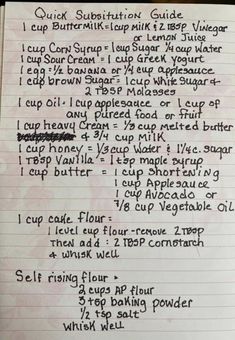 Quick Substitution Guide
1 cup Buttermilk=1cup Milk & 2TBSP Vinegar
or Lemon Juice
1 cup Corn Syrup = 1cup Sugar 1/4 cup Water
1 cup Sour Cream = 1 cup Greek yogurt
1 egg = 1/2 banana or 1/4 cup applesauce
1 cup brown Sugar = 1 cup White Sugar &
2 TBSP Molasses
1 cup Oil = 1 cup applesauce or 1 cup of
any pureed food or fruit
1 cup heavy Cream = 1/3 cup melted butter
& 3/4 cup Milk
1 cup honey = 1/3 cup Water & 1 1/4 c. sugar
1 TBSP Vanilla = 1 tbsp maple syrup
1 cup butter = 1 cup Shortening
1 cup Applesauce
1 cup Avocado or
7/8 cup Vegetable Oil
1 cup cake flour =
1 level cup flour - remove 2 TBSP
Then add : 2 TBSP cornstarch
& whisk well
Self rising flour =
2 cups AP flour
3 tsp baking powder
1/2 tsp salt
whisk well